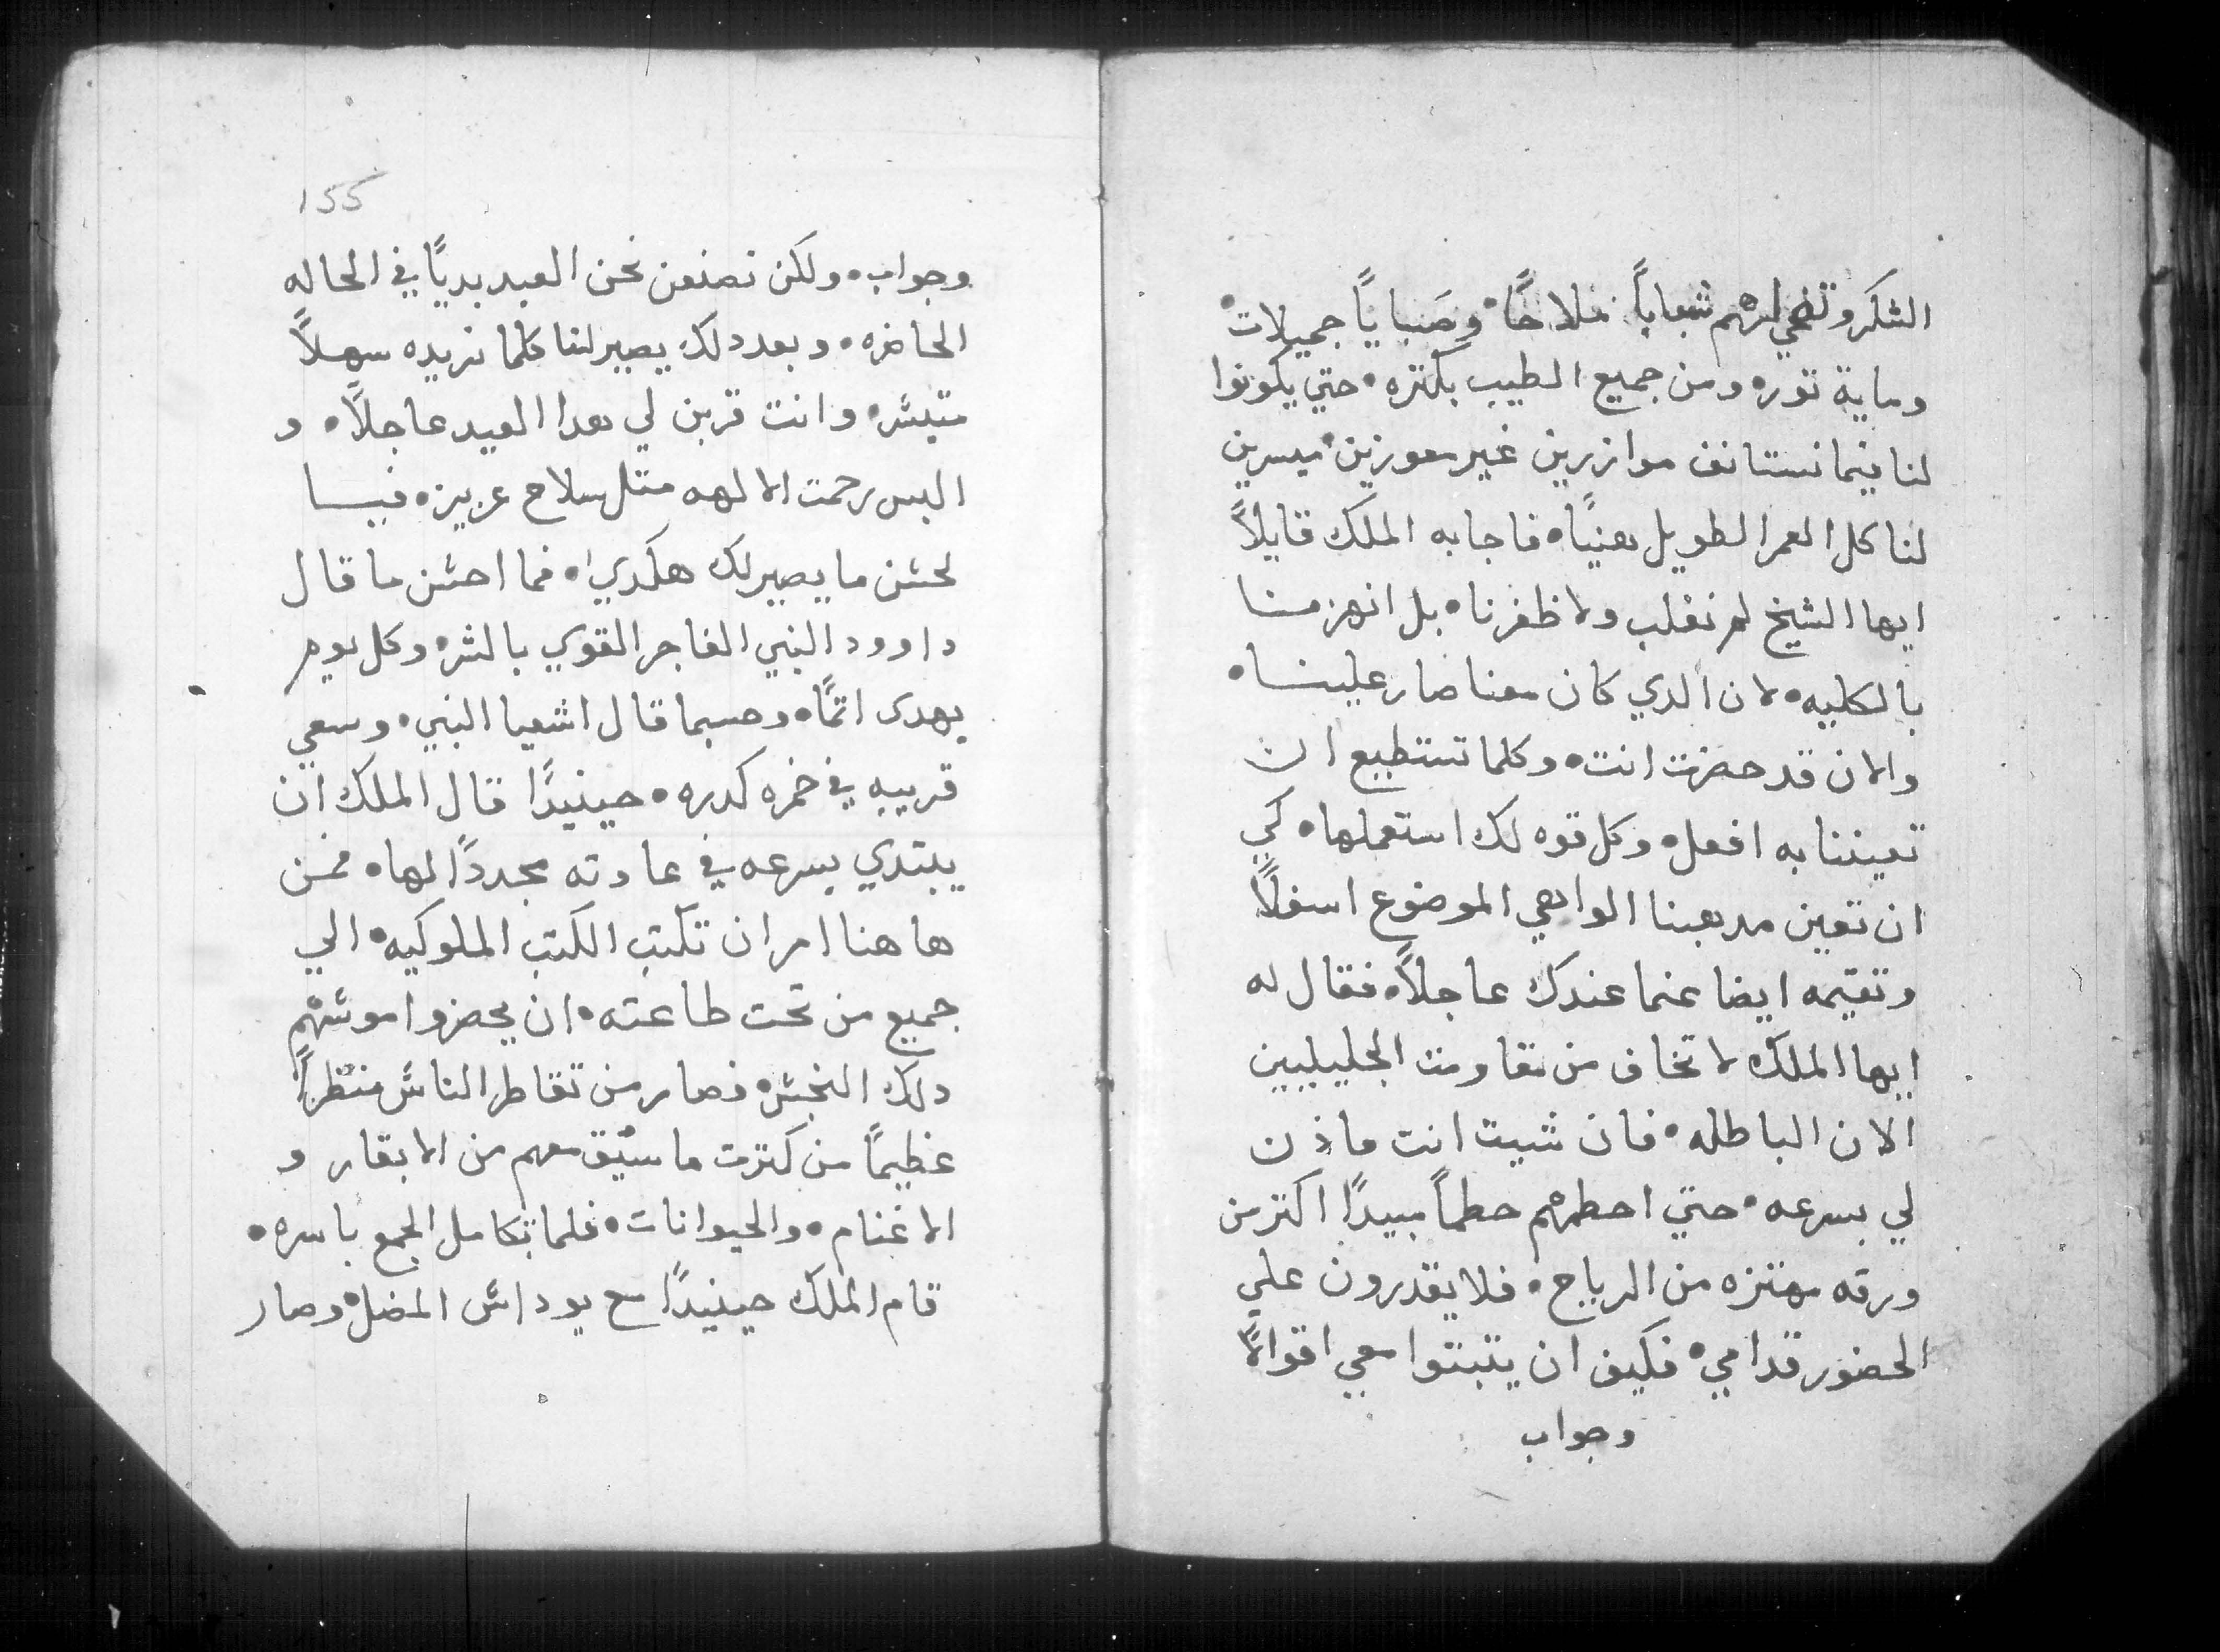 الشكر وتضحي لهم شباباً ملاحًا • وصَبايًا جميلات •
وماية توره ومن جميع الطيب بكتره • حتي يكونوا
لنا فيما نستانف موازرين غير معوزين • ميسرين
لنا كل العمر الطويل هنيًا • فاجابه الملك قايلاً
ايها الشيخ لم نغلب ولا ظفرنا • بل انهزمنا
بالكليه • لان الدي كان معنا صار علينا •
والان قد حضرت انت • وكلما تستطيع ان
تعيننا به افعل • وكل قوه لك استعملها • كي
ان تعين مدهبنا الواهي الموضوع اسفلاً
وتقيمه ايضا عنما عندك عاجلاً • فقال له
ايها الملك لا تخاف من مقاومت الجليليين
الان الباطله • فان شيت انت ماذن
لي بسرعه • حتي احطمهم حطماً مبيدًا اكتر من
ورقه مهتزه من الرياح • فلا يقدرون علي
الحضور قدامي • فكيف ان يتبتوا معي اقوالاً
وجواب
155
وجواب • ولكن نصنعن نحن العيد بديًا في الحاله
الحاضره • وبعد دلك يصير لنا كلما نريده سهلاً
متيسّر • وانت قربن لي هدا العيد عاجلاً • و
البس رحمت الالهه متل سلاح عزيزه فيا
لحسن ما يصير لك هكدي • فما احسن ما قال
داوود النبي الفاجر القوي بالشر • وكل يوم
يهدي اتمًا • وحسبما قال اشعيا النبي • وسعي
قريبه في خمره كدره • حينيدًا قال الملك ان
يبتدي بسرعه في عادته مجددًا لها • فمن
هاهنا امر ان تكتب الكتب الملوكيه • الي
جميع من تحت طاعته • ان يحضروا موسم
دلك النجس • فصار من تقاطر الناس منظراً
عظيمًا من كترت ما سيق معهم من الابقار و
الاغنام • والحيوانات • فلما تكامل الجمع باسره •
قام الملك حينيدًا مع يوداس المضل • وصار